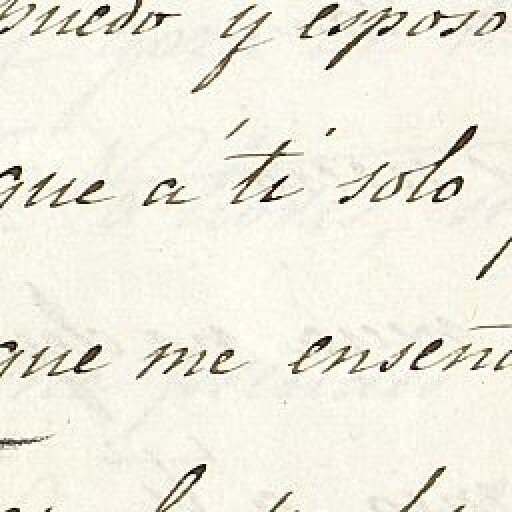 puedo y esposo
que á ti solo
que me enseñ